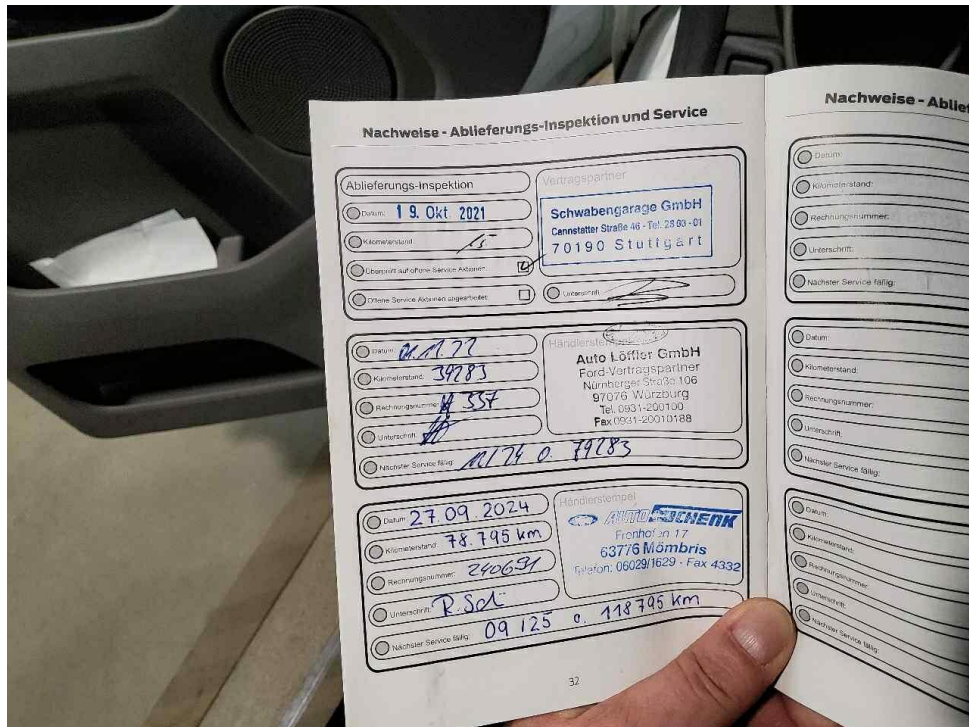 Nachweise - Ablieferungs-Inspektion und Service
Ablieferungs-Inspektion
Datum: 19. Okt. 2021
Kilometerstand: 15
Überprüft auf offene Service Aktionen:
Offene Service Aktionen abgearbeitet:
Vertragspartner
Schwabengarage GmbH
Cannstatter Straße 46 - Tel. 28 03 - 01
70190 Stuttgart
Unterschrift:
Datum: 01.11.22
Kilometerstand: 39283
Rechnungsnummer: 557
Unterschrift:
Nächster Service fällig: 11/24 o. 79283
Händlerstempel
Auto Löffler GmbH
Ford-Vertragspartner
Nürnberger Straße 106
97076 Würzburg
Tel. 0931-200100
Fax 0931-20010188
Datum: 27.09.2024
Kilometerstand: 78.795 km
Rechnungsnummer: 240691
Unterschrift: R. Sch
Nächster Service fällig: 09 125 o. 118795 km
Händlerstempel
AUTO SCHENK
Fronhofen 17
63776 Mömbris
Telefon: 06029/1629 - Fax 4332
32
Nachweise - Ablief
Datum:
Kilometerstand:
Rechnungsnummer:
Unterschrift:
Nächster Service fällig:
Datum:
Kilometerstand:
Rechnungsnummer:
Unterschrift:
Nächster Service fällig:
Datum:
Kilometerstand:
Rechnungsnummer:
Unterschrift:
Nächster Service fällig: